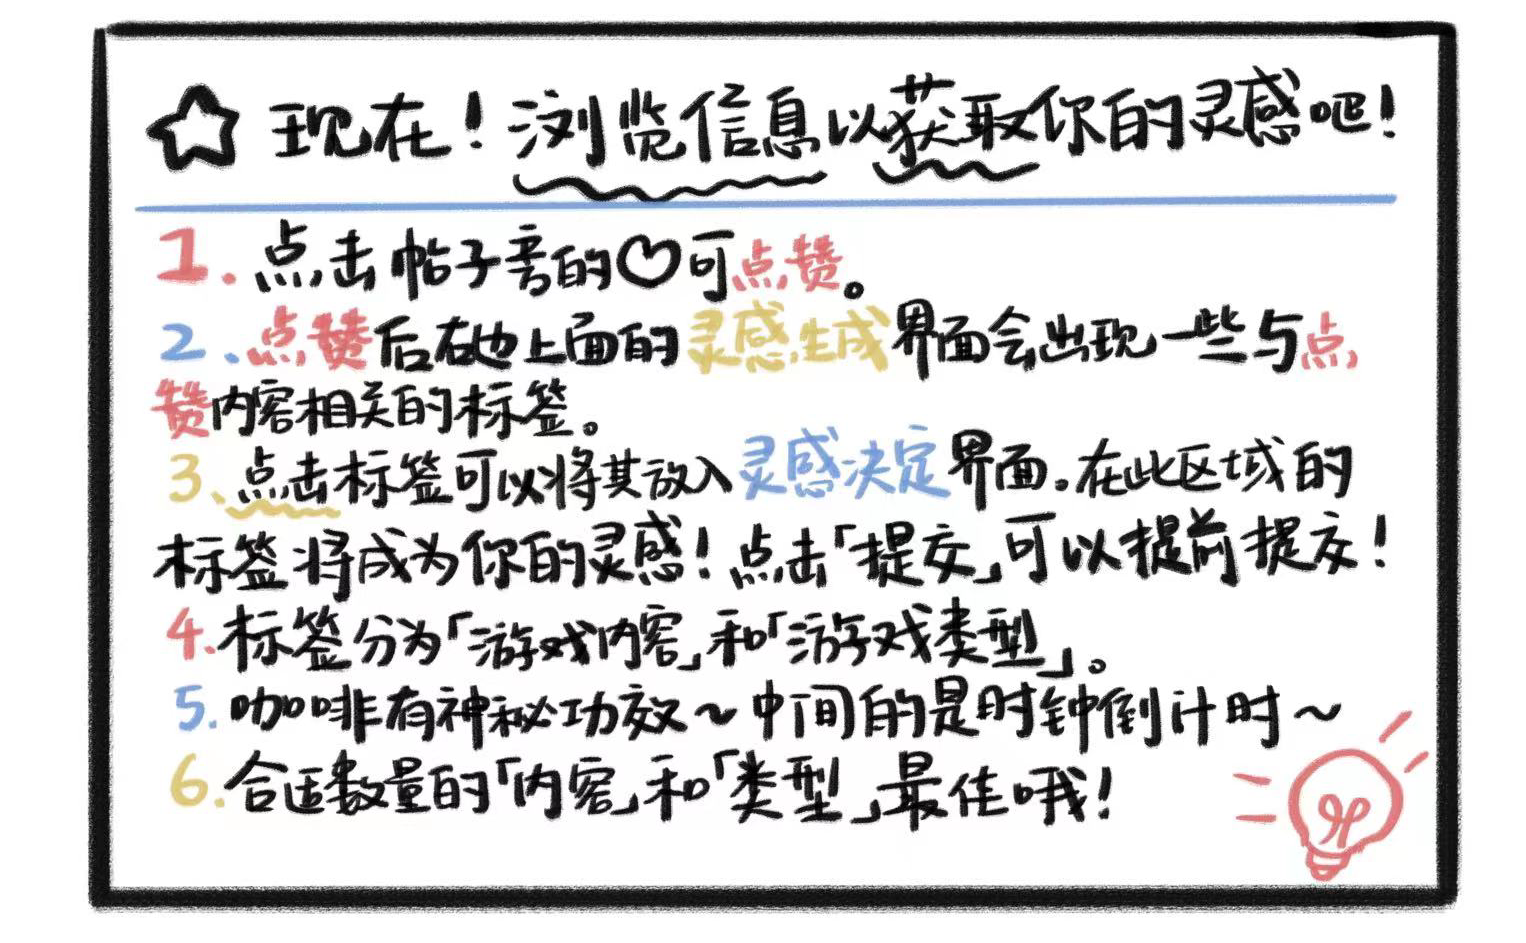 ☆现在！浏览信息以获取你的灵感吧！
1.点击帖子旁的♡可点赞。
2、点赞后在她上面的灵感生成界面会出现一些与点
赞内容相关的标签。
3、点击标签可以将其放入灵感决定界面.在此区域的
标签将成为你的灵感！点击「提交」可以提前提交！
4.标签分为「游戏内容」和「游戏类型」。
5.咖啡有神秘功效～中间的是时钟倒计时～
6.合适数量的「内容」和「类型」最佳哦！